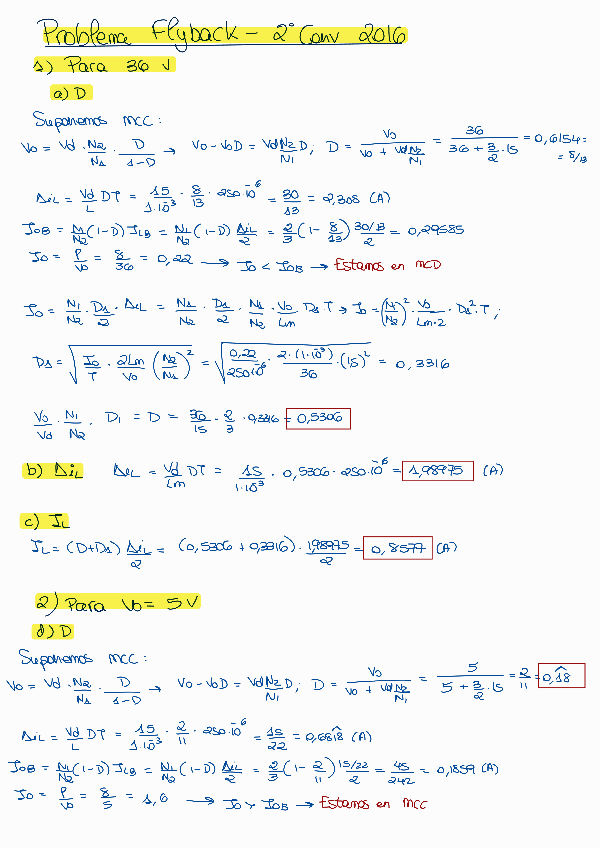 Problema Flyback - 2ª Conv 2016
1) Para 36 V
a) D
Suponemos MCC:
Vo = Vd · N2/N1 · D/(1-D) → Vo - VoD = Vd N2/N1 D; D = Vo/(Vo + Vd N2/N1) = 36/(36 + 3/2 · 15) = 0,6154 =
= 8/13
ΔiL = Vd/L DT = 15/(1·10³) · 8/13 · 250·10⁻⁶ = 30/13 = 2,308 (A)
IOB = N1/N2 (1-D) ILB = N1/N2 (1-D) ΔiL/2 = 2/3 (1 - 8/13) (30/13)/2 = 0,29585
Io = P/Vo = 8/36 = 0,22 → Io < IOB → Estamos en MCD
Io = N1/N2 · D1/2 · ΔiL = N1/N2 · D1/2 · N1/N2 · Vo/Lm D1 T → Io = (N1/N2)² · Vo/(Lm·2) · D1² · T;
D1 = √(Io/T · 2Lm/Vo (N2/N1)²) = √(0,22/(250·10⁻⁶) · 2·(1·10³)/36 · (1,5)²) = 0,3316
Vo/Vd · N1/N2 · D1 = D = 36/15 · 2/3 · 0,3316 = 0,5306
b) ΔiL ΔiL = Vd/Lm DT = 15/(1·10³) · 0,5306 · 250·10⁻⁶ = 1,98975 (A)
c) IL
IL = (D+D1) ΔiL/2 = (0,5306 + 0,3316) · 1,98975/2 = 0,8577 (A)
2) Para Vo = 5 V
d) D
Suponemos MCC:
Vo = Vd · N2/N1 · D/(1-D) → Vo - VoD = Vd N2/N1 D; D = Vo/(Vo + Vd N2/N1) = 5/(5 + 3/2 · 15) = 2/11 = 0,18
ΔiL = Vd/L DT = 15/(1·10³) · 2/11 · 250·10⁻⁶ = 15/22 = 0,6818 (A)
IOB = N1/N2 (1-D) ILB = N1/N2 (1-D) ΔiL/2 = 2/3 (1 - 2/11) (15/22)/2 = 45/242 = 0,1859 (A)
Io = P/Vo = 8/5 = 1,6 → Io > IOB → Estamos en MCC